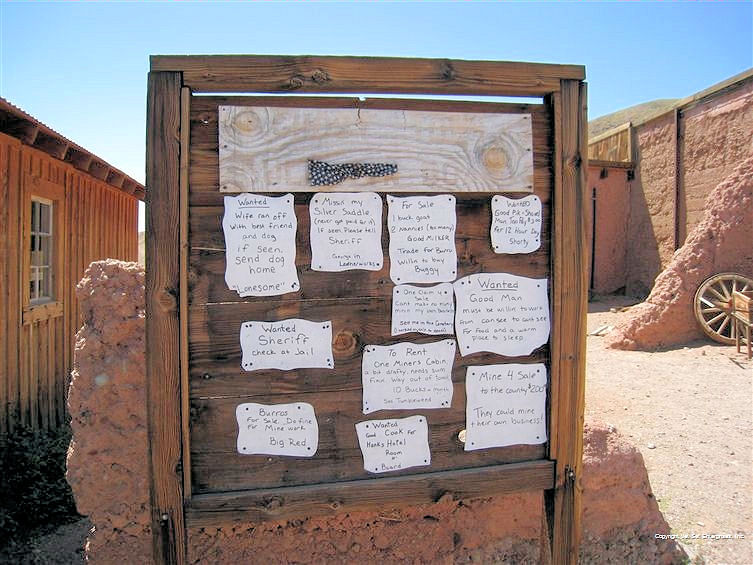 Wanted
Wife ran off
with best friend
and dog
if seen,
send dog
home
"Lonesome"
Missin my
Silver Saddle
(never got paid for it)
If seen Please tell
Sheriff
George in
Leatherworks
For Sale
1 buck goat
2 Nannies (as many)
Good Milker
Trade for Burro
Willin to buy
Buggy
Wanted
Good Pik & Shovel
Man Too Pay $3.00
Per 12 Hour Day
Shorty
One Claim 4
Sale
Cant make no money
minin my own business
see me in the Cemetery
(I worked myself to death)
Wanted
Good Man
must be willin to work
from can see to cant see
For food and a warm
place to sleep
Wanted
Sheriff
check at Jail
To Rent
One Miners Cabin
a bit drafty, needs sum
fixin. Way out of town
10 Bucks a month
See Tumbleweed
Mine 4 Sale
to the county $200
They could mine
their own business!
Burros
For Sale. Do fine
For Mine work
Big Red
Wanted
Good Cook For
Hanks Hotel
Room
n'
Board